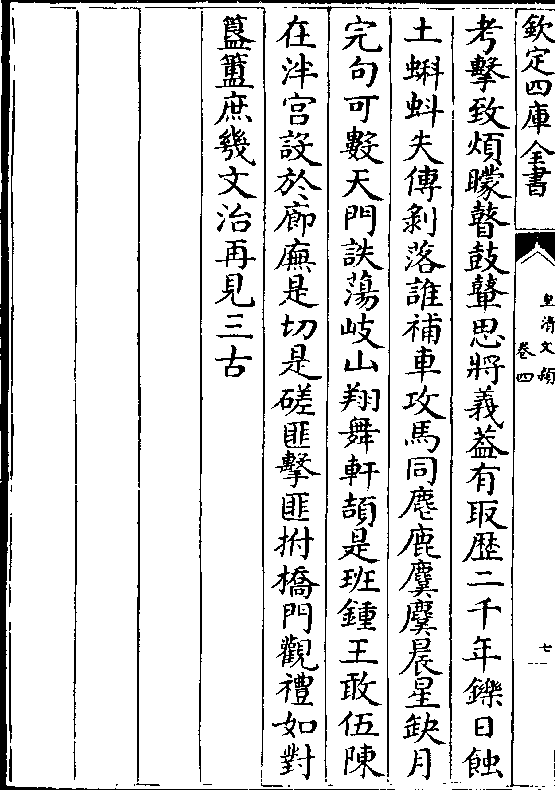 欽定四庫全書
皇清文頴
卷四
七
考擊致煩矇瞽鼓鼙思將義葢有取歴二千年鑠日蝕
土蝌蚪失傳剝落誰補車攻馬同麀鹿麌麌晨星缺月
完句可數天門詄蕩岐山翔舞軒頡是班鍾王敢伍陳
在泮宫設於廊廡是切是磋匪擊匪拊橋門觀禮如對
簋簠庶幾文治再見三古